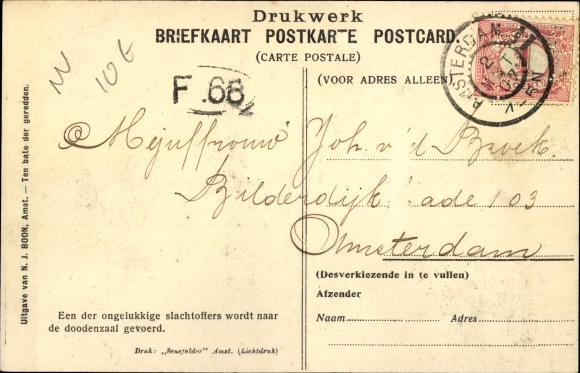 Drukwerk
BRIEFKAART POSTKARTE POSTCARD.
(CARTE POSTALE)
(VOOR ADRES ALLEEN)
AMSTERDAM
N
106
F.68
Mejuffrouw Joh. v 'd Broek.
Bilderdijk ade 103
Amsterdam
(Desverkiezende in te vullen)
Afzender
Naam Adres
Een der ongelukkige slachtoffers wordt naar
de doodenzaal gevoerd.
Druk: „Senefelder" Amst. (Lichtdruk)
Uitgave van N. J. BOON, Amst. — Ten bate der geredden.